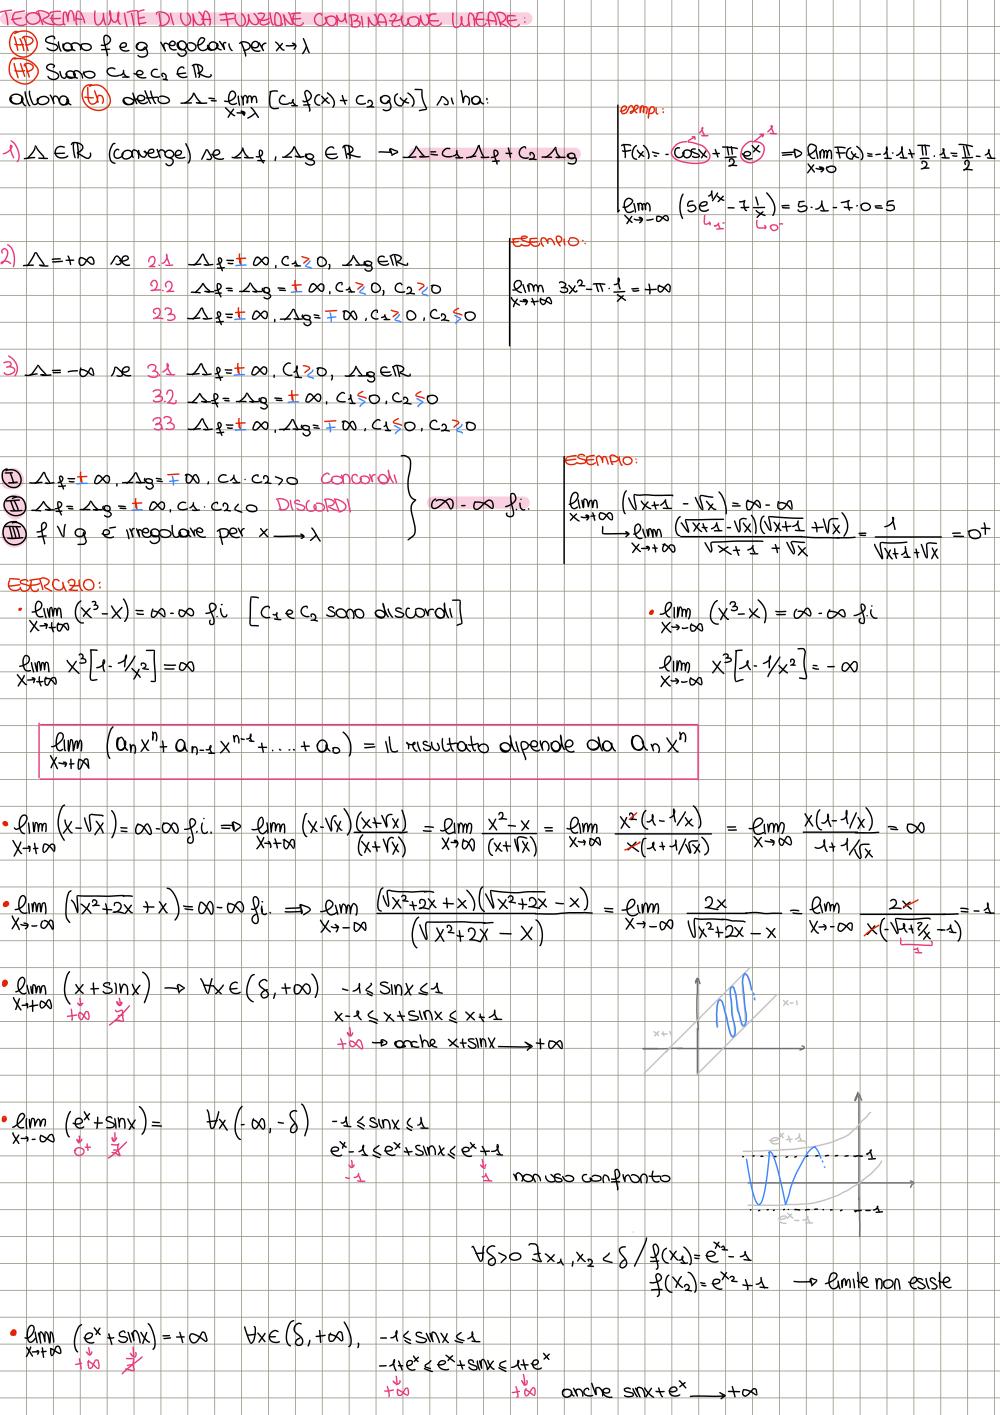 TEOREMA LIMITE DI UNA FUNZIONE COMBINAZIONE LINEARE:
HP Siano f e g regolari per x→λ
HP Siano c1 e c2 ∈ ℝ
allora th detto Λ = lim x→λ [c1 f(x) + c2 g(x)] si ha:
1) Λ ∈ ℝ (converge) se Λf, Λg ∈ ℝ → Λ = c1 Λf + c2 Λg
esempi:
F(x) = - cosx + π/2 e^x ⇒ lim x→0 F(x) = -1·1 + π/2 · 1 = π/2 - 1
1 1
lim x→-∞ (5e^1/x - 7 1/x) = 5·1 - 7·0 = 5
↳1 ↳0
2) Λ = +∞ se 2.1 Λf = ± ∞, c1 ≷ 0, Λg ∈ ℝ
2.2 Λf = Λg = ± ∞, c1 ≷ 0, c2 ≷ 0
2.3 Λf = ± ∞, Λg = ∓ ∞, c1 ≷ 0, c2 ≶ 0
ESEMPIO:
lim x→+∞ 3x² - π · 1/x = +∞
3) Λ = -∞ se 3.1 Λf = ± ∞, c1 ≷ 0, Λg ∈ ℝ
3.2 Λf = Λg = ± ∞, c1 ≶ 0, c2 ≶ 0
3.3 Λf = ± ∞, Λg = ∓ ∞, c1 ≶ 0, c2 ≷ 0
I Λf = ± ∞, Λg = ∓ ∞, c1 · c2 > 0 concordi
II Λf = Λg = ± ∞, c1 · c2 < 0 DISCORDI
III f ∨ g è irregolare per x → λ
∞ - ∞ f.i.
ESEMPIO:
lim x→+∞ (√x+1 - √x) = ∞ - ∞
↳ lim x→+∞ (√x+1 - √x)(√x+1 + √x) / √x+1 + √x = 1 / √x+1 + √x = 0⁺
ESERCIZIO:
• lim x→+∞ (x³ - x) = ∞ - ∞ f.i [c1 e c2 sono discordi]
lim x→+∞ x³[1 - 1/x²] = ∞
• lim x→-∞ (x³ - x) = ∞ - ∞ f.i
lim x→-∞ x³[1 - 1/x²] = - ∞
lim x→+∞ (aₙxⁿ + aₙ₋₁xⁿ⁻¹ + .... + a₀) = il risultato dipende da aₙxⁿ
• lim x→+∞ (x - √x) = ∞ - ∞ f.i. ⇒ lim x→+∞ (x - √x) (x + √x)/(x + √x) = lim x→∞ x² - x / (x + √x) = lim x→∞ x² (1 - 1/x) / x (1 + 1/√x) = lim x→∞ x(1 - 1/x) / 1 + 1/√x = ∞
• lim x→-∞ (√x²+2x + x) = ∞ - ∞ f.i. ⇒ lim x→-∞ (√x²+2x + x)(√x²+2x - x) / (√x²+2x - x) = lim x→-∞ 2x / √x²+2x - x = lim x→-∞ 2x / x(-√1+2/x - 1) = -1
1
• lim x→+∞ (x + sinx) → ∀x ∈ (δ, +∞) -1 ≤ sinx ≤ 1
+∞ ∄
x-1 ≤ x + sinx ≤ x+1
+∞ → anche x + sinx → +∞
x+1
x-1
• lim x→-∞ (e^x + sinx) = ∀x (-∞, -δ) -1 ≤ sinx ≤ 1
0⁺ ∄
e^x - 1 ≤ e^x + sinx ≤ e^x + 1
-1 1 non uso confronto
e^x+1
1
-1
e^x-1
∀δ > 0 ∃ x1, x2 < δ / f(x1) = e^x2 - 1
f(x2) = e^x2 + 1 → limite non esiste
• lim x→+∞ (e^x + sinx) = +∞ ∀x ∈ (δ, +∞), -1 ≤ sinx ≤ 1
+∞ ∄
-1 + e^x ≤ e^x + sinx ≤ 1 + e^x
+∞ +∞ anche sinx + e^x → +∞